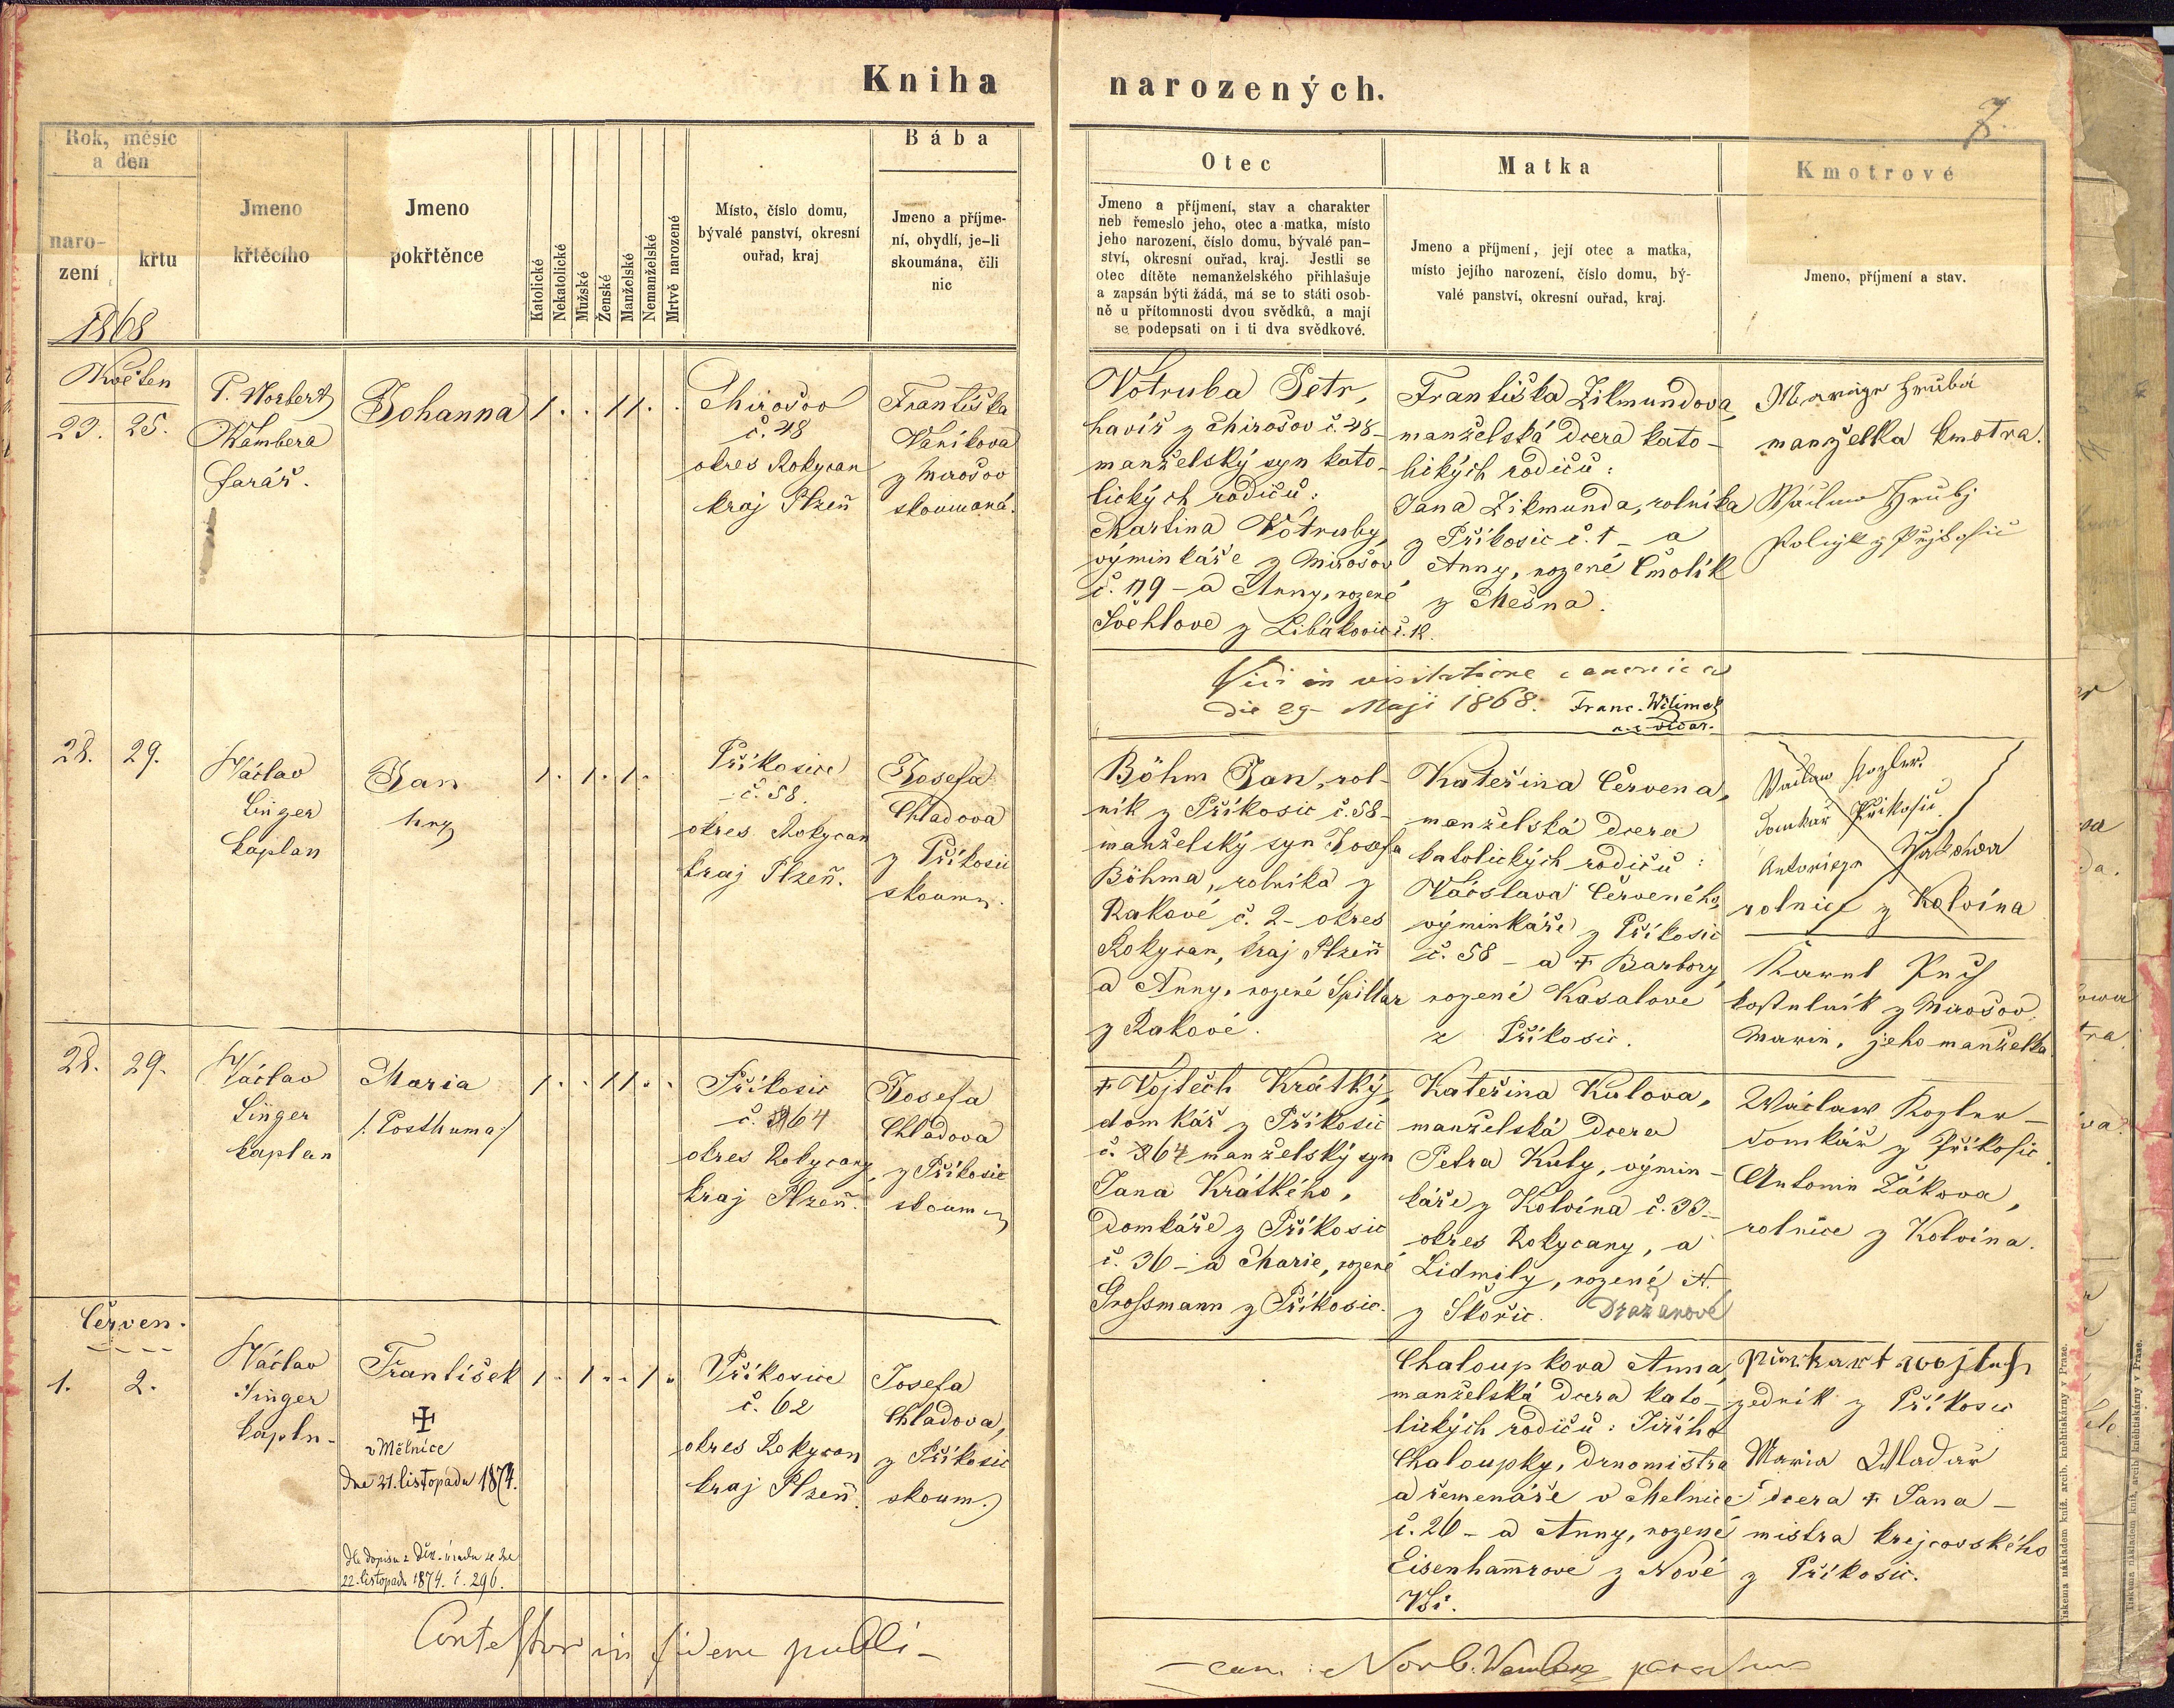 Kniha narozených.
7.
Rok, měsíc
a den
naro-
zení
křtu
Jmeno
křtěcího
Jmeno
pokřtěnce
Katolické
Nekatolické
Mužské
Ženské
Manželské
Nemanželské
Mrtvě narozené
Místo, číslo domu,
bývalé panství, okresní
ouřad, kraj
Bába
Jmeno a příjme-
ní, obydlí, je-li
skoumána, čili
nic
Otec
Jmeno a příjmení, stav a charakter
neb řemeslo jeho, otec a matka, místo
jeho narození, číslo domu, bývalé pan-
ství, okresní ouřad, kraj. Jestli se
otec dítěte nemanželského přihlašuje
a zapsán býti žádá, má se to státi osob-
ně u přítomnosti dvou svědků, a mají
se podepsati on i ti dva svědkové.
Matka
Jmeno a příjmení, její otec a matka,
místo jejího narození, číslo domu, bý-
valé panství, okresní ouřad, kraj.
Kmotrové
Jmeno, příjmení a stav.
1868
Květen
23. 25.
P. Norbert
Wambera
farář.
Johanna
1 . . 1 1 . .
Mirošov
č. 48
okres Rokycan
kraj Plzeň
Františka
Vaníkova
z Mirošov
skoumaná.
Votruba Petr,
havíř z Mirošov č. 48-
manželský syn kato-
lických rodičů:
Martina Votruby,
výminkáře z Mirošov
č. 119 - a Anny, rozené
Švehlove z Libákovic č. 12.
Františka Zikmundova,
manželská dcera kato-
lických rodičů:
Jana Zikmunda, rolníka
z Příkosic č. 1 - a
Anny, rozené Čmolík
z Mešna.
Hrubá
manželka kmotra.
Václav Hrubý
Vidi in visitatione canonica
die 29 Maji 1868. Franc. Wilimek
28. 29.
Václav
Singer
kaplan
Jan
1 . 1 . 1 .
Příkosice
č. 58.
okres Rokycan
kraj Plzeň.
Josefa
Chladova
z Příkosic
skoum.
Böhm Jan, rol-
ník z Příkosic č. 58-
manželský syn Josefa
Böhma, rolníka z
Rakové č. 2 - okres
Rokycan, kraj Plzeň
a Anny, rozené Špillar
z Rakové.
Kateřina Červena,
manželská dcera
katolických rodičů:
Václava Červeného,
výminkáře z Příkosic
č. 58 - a † Barbory
rozené Kasalove
z Příkosic.
Václav Kozler.
domkář Příkosic
rolnice z Kolvína
Karel
kostelník z Mirošov
Marie, jeho manželka
28. 29.
Václav
Singer
kaplan
Maria
/: Posthuma :/
1 . . 1 1 . .
Příkosic
č. 64
okres Rokycany
kraj Plzeň.
Josefa
Chladova
z Příkosic
skoum
† Vojtěch Krátký,
domkář z Příkosic
č. 64 manželský syn
Jana Krátkého,
domkáře z Příkosic
č. 36 - a Marie, rozené
Grossmann z Příkosic.
Kateřina Kulova,
manželská dcera
Petra Kuly, výmin-
káře z Kolvína č. 33-
okres Rokycany, a
Lidmily, rozené A.
z Skořic. Dražanové
Václaw Kozler -
domkář z Příkosic.
Antonie Žákova,
rolnice z Kolvína.
Červen.
1. 2.
Václav
Singer
kapln-
František
✠
v Mělnice
dne 21. listopadu 1874.
dle dopisu z důst. úradu ze dne
22. listopadu 1874. č. 296.
1 . 1 . . 1 .
Příkosice
č. 62
okres Rokycan
kraj Plzeň.
Josefa
Chladova,
z Příkosic
skoum.
Chaloupkova Anna,
manželská dcera kato-
lických rodičů: Jiřího
Chaloupky,
a řemenáře v Melnice
č. 26 - a Anny, rozené
Eisenhamrove z Nové
Vsi.
zedník z Příkosic
Maria
dcera † Jana -
mistra krejcovského
z Příkosic.
Contestor in fidem publi-
- cam: Norb. Wambera parochus
Tiskem a nákladem kníž. arcib. knihtiskárny v Praze.